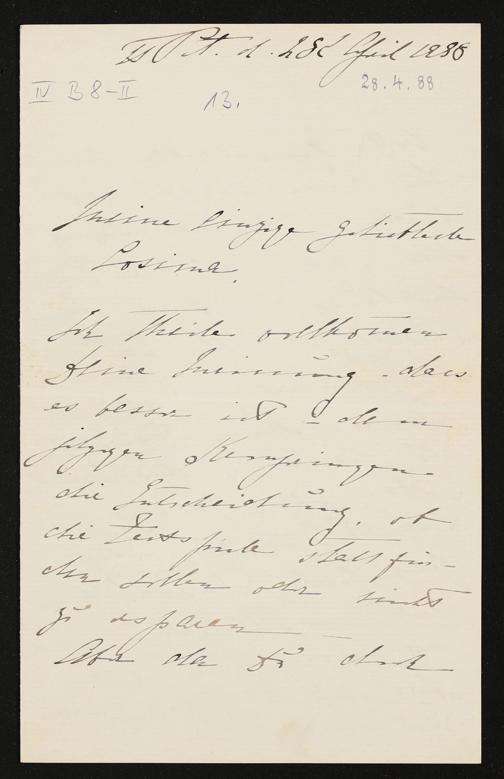 Bt. d. 28t April 1888
28.4.88
IV B 8-II
13.
Meine einzige geliebteste
Cosima,
Ich theile vollkommen
Deine Meinung – dass
es besser ist – dem
jetzigen
die Entscheidung, ob
die Festspiele stattfin-
den sollen oder nicht
zu ersparen –
Aber da Du doch